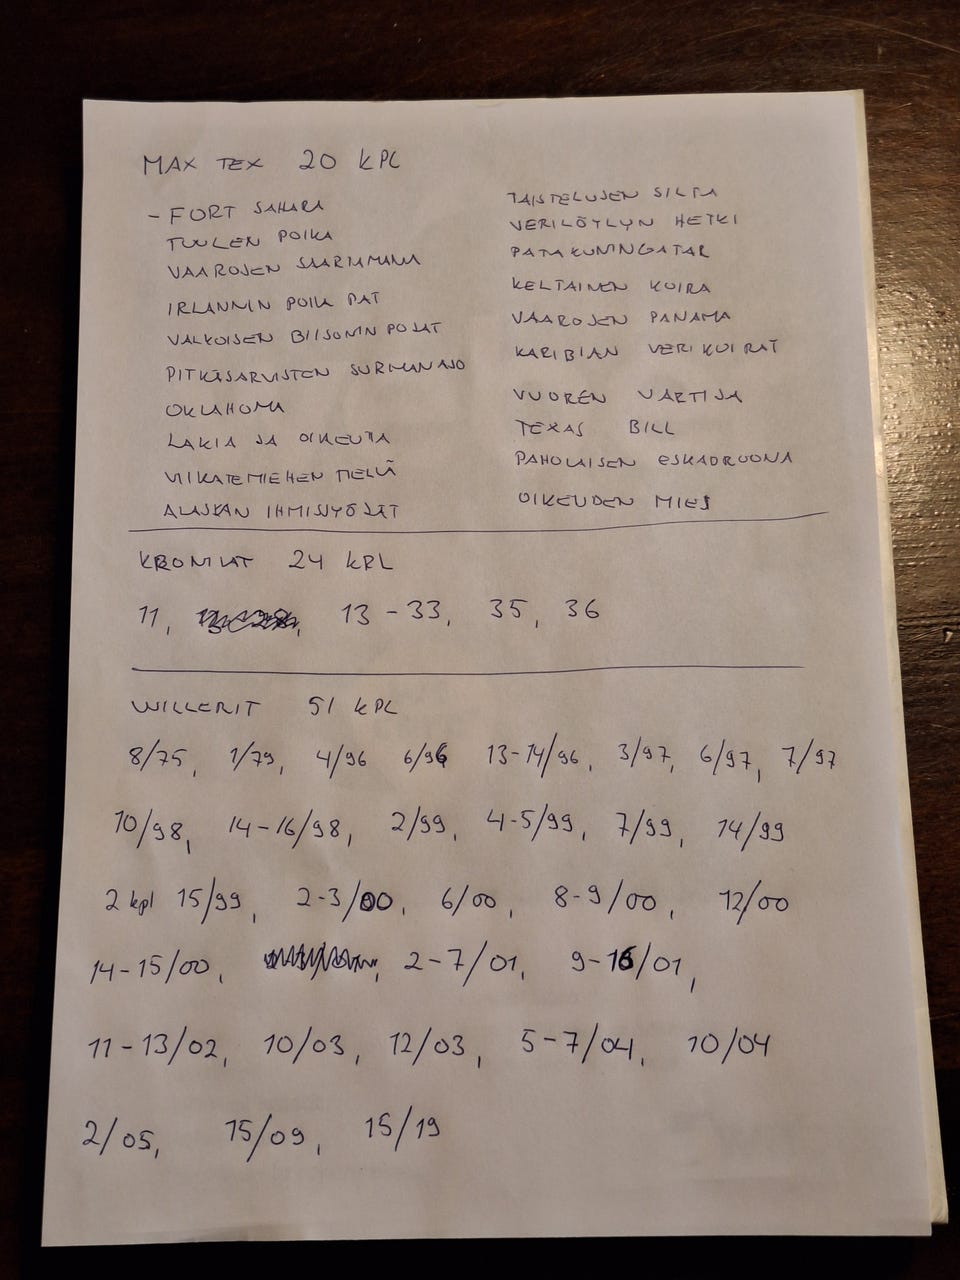 MAX TEX 20 KPL
- FORT SAHARA
TUULEN POIKA
VAAROJEN SAARIMAMA
IRLANNIN POIKA PAT
VALKOISEN BIISONIN POJAT
PITKÄSARVISTEN SURMANAJO
OKLAHOMA
LAKIA JA OIKEUTTA
VIIKATEMIEHEN TIELLÄ
ALASKAN IHMISSYÖJÄT
TAISTELUJEN SILTA
VERILÖYLYN HETKI
PATAKUNINGATAR
KELTAINEN KOIRA
VAAROJEN PANAMA
KARIBIAN VERIKOIRAT
VUOREN VARTIJA
TEXAS BILL
PAHOLAISEN ESKADROONA
OIKEUDEN MIES
KRONIKAT 24 KPL
11, 13-33, 35, 36
WILLERIT 51 KPL
8/75, 1/79, 4/96 6/96 13-14/96, 3/97, 6/97, 7/97
10/98, 14-16/98, 2/99, 4-5/99, 7/99, 14/99
2 kpl 15/99, 2-3/00, 6/00, 8-9/00, 12/00
14-15/00, 2-7/01, 9-16/01,
11-13/02, 10/03, 12/03, 5-7/04, 10/04
2/05, 15/09, 15/19